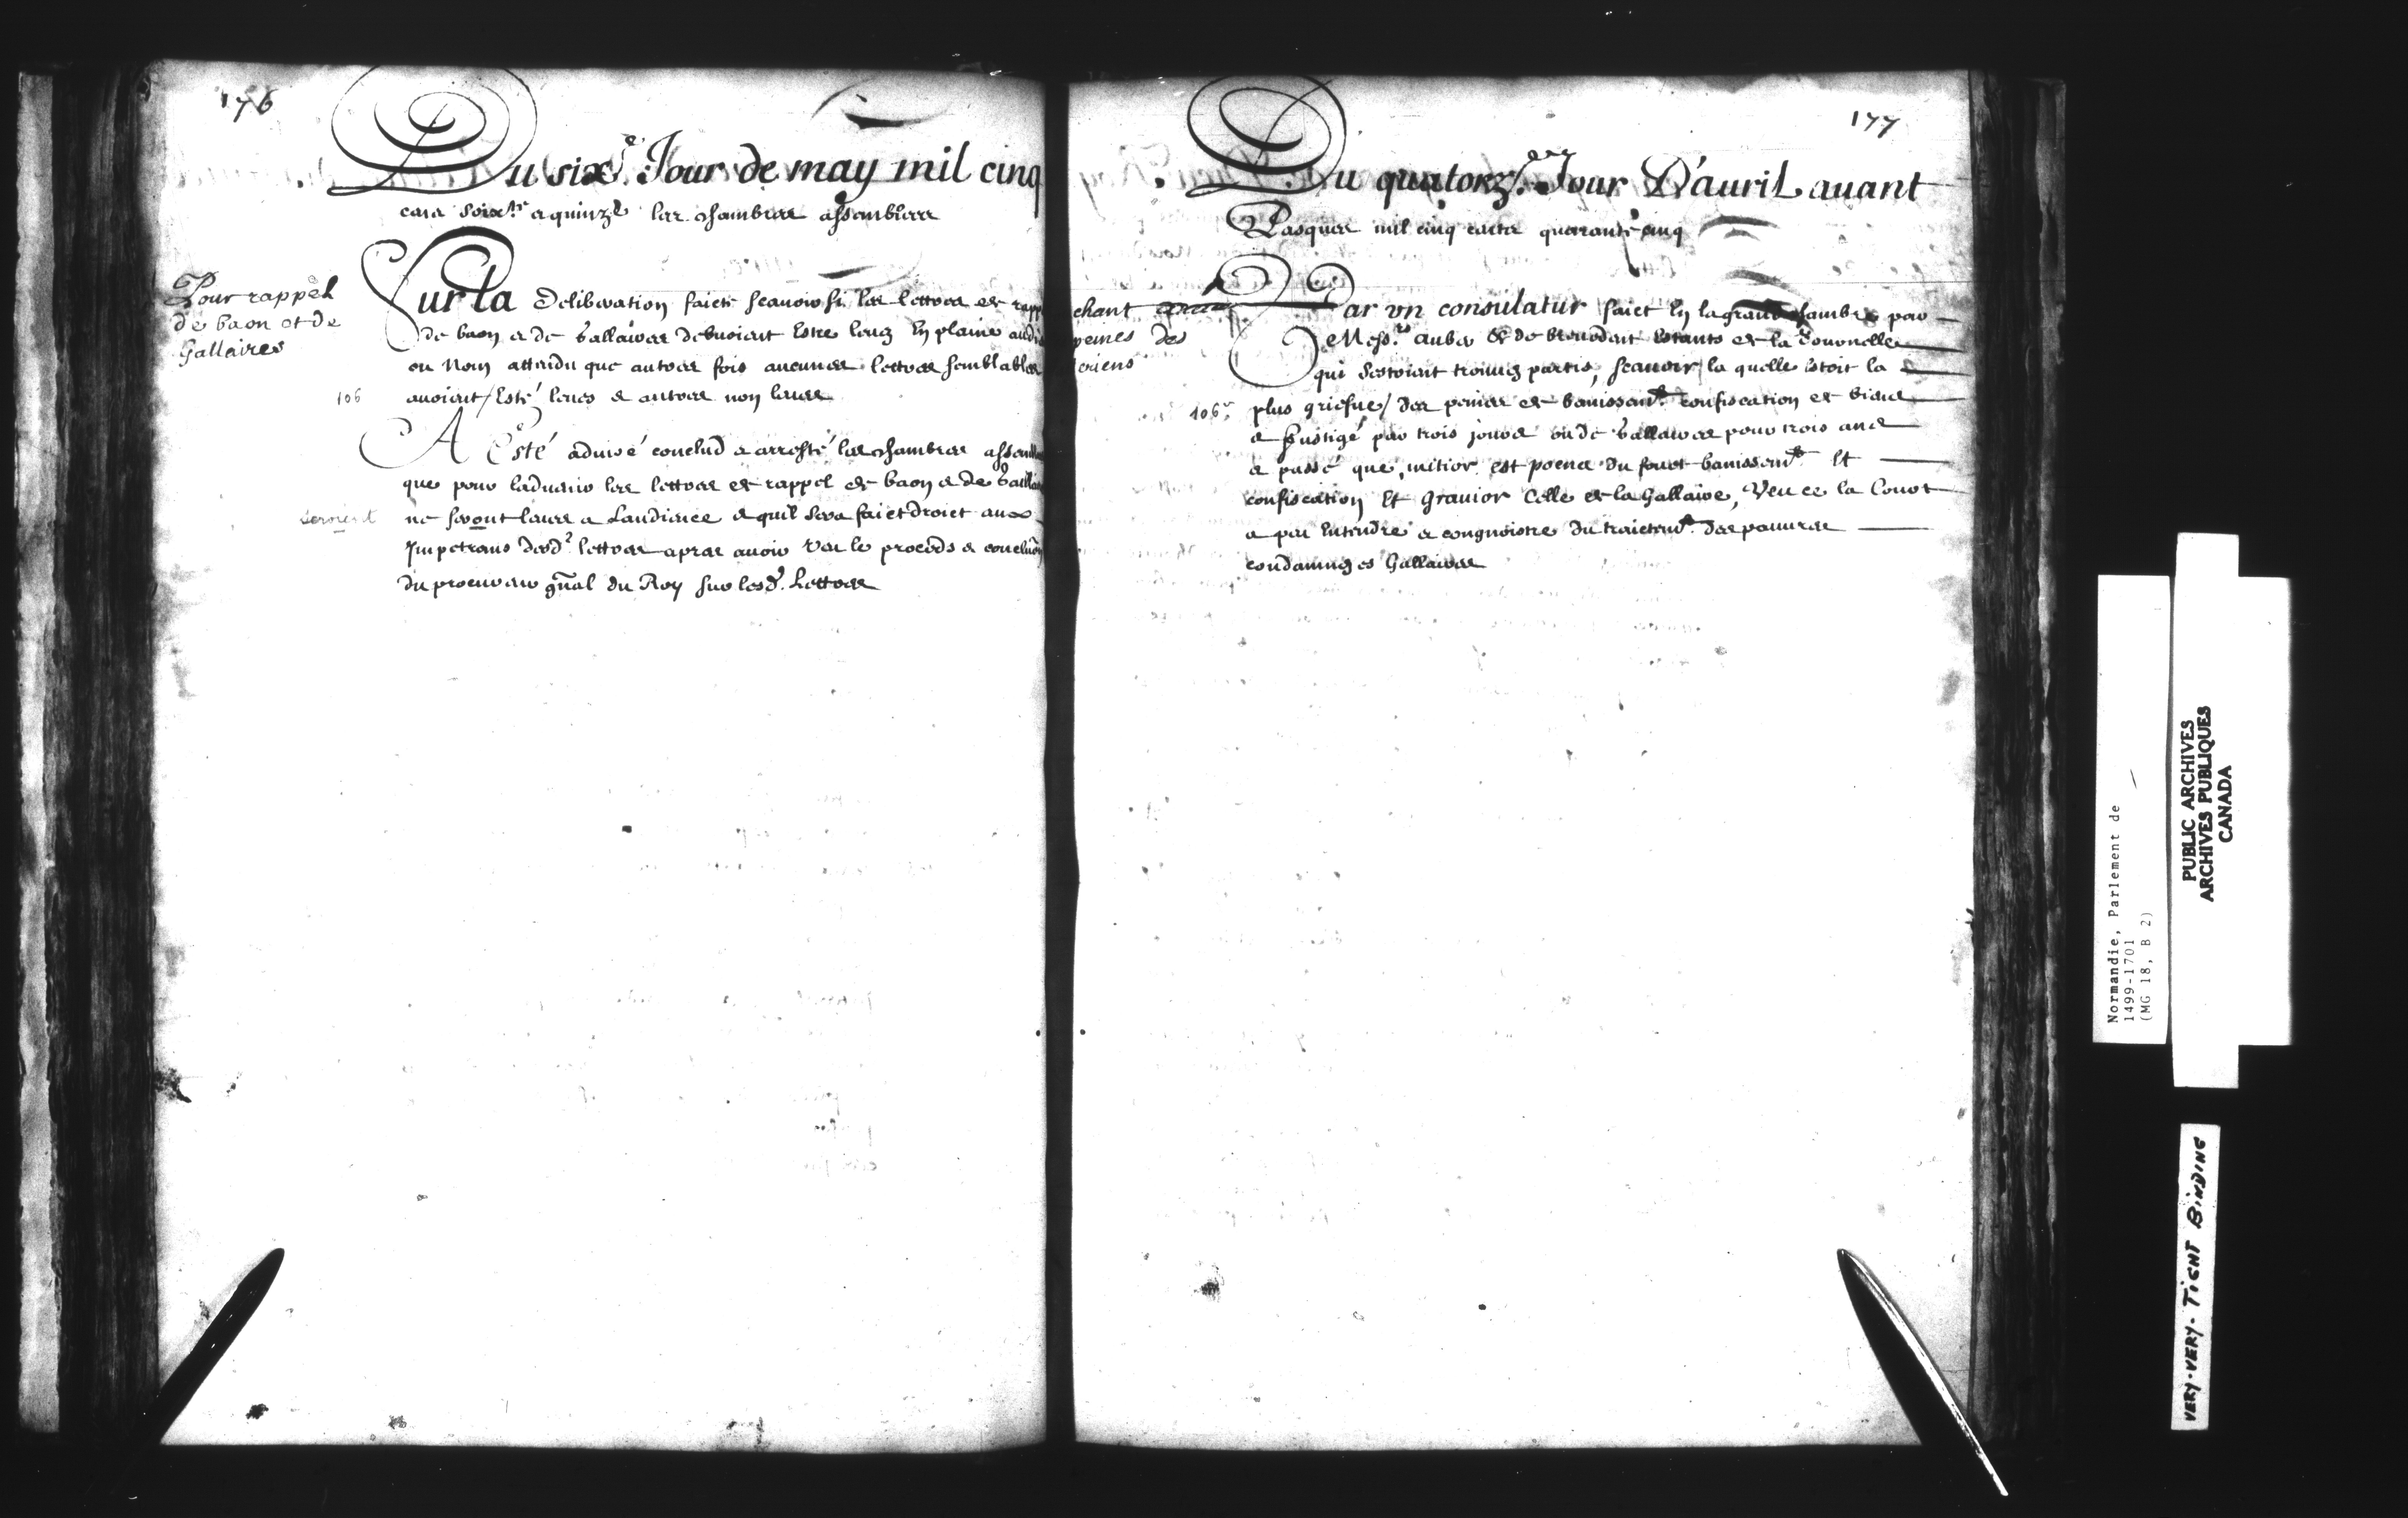 176
Du six.e Jour de may mil cinq
cens soix.te et quinze les chambres assemblees
Pour rappel
de baon et de
Gallaires
Sur la deliberation faicte scauoir si les lettres de rapp
de baon et de Gallaires debuoient estre leuz en plaine audi
ou non attendu que autres fois aucunes lettres semblables
106 auoient esté leues et autres non leues
A Esté aduisé conclud et arresté les chambres assembl
que pour laduenir les lettres de rappel de baon et de Gallai
seroient
ne seront leues a laudience et quil sera faict droict aux
Impetrans desd. lettres apres auoir veu le proceds et conclu̅on
du procureur gn̅al du Roy sur lesd. Lettres
177
Du quatorz.e Jour D'auril auant
Pasques mil cinq cents quarante cinq
chant
peines des
eriens
Par vn consulatur faict en la grand chambre par
Mess.rs auber et de estants de la Tournelle
qui sestoient trouuez partis, scauoir la quelle estoit la
106.v plus griefue des peines de banissem.t confiscation de biens
et fustigé par trois jours ou de Gallaires pour trois ans
a passé que mitior est poena du fouet banissem.t Et
confiscation Et grauior Celle de la Gallaire, Veu ce la Court
a peu entendre et congnoistre du traictem.t des pauures
condamnez es Gallaires
Normandie, Parlement de
1499-1701
(MG 18, B 2)
PUBLIC ARCHIVES
ARCHIVES PUBLIQUES
CANADA
VERY-VERY-TIGHT BINDING